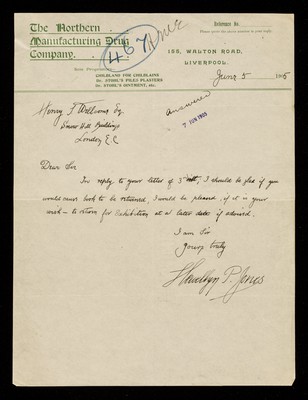 The Northern
Manufacturing Drug
Company.
Sole Proprietors
CHILBLAND FOR CHILBLAINS
Dr. STOHL'S PILES PLASTERS
Dr. STOHL'S OINTMENT, Etc.
Reference No.
Please quote the above number in your reply.
155, WALTON ROAD,
LIVERPOOL.
June 5 1905
467
Answered
7 JUN 1905
Henry S. Wellcome Esq
Snow Hill Buildings
London E.C
Dear Sir
In reply to your letter of 3rd inst, I should be glad if you
would cause book to be returned, I would be pleased, if it is your
wish – to return for Exhibition at a later date if advised.
I am Sir
yours truly
Llewellyn P. Jones